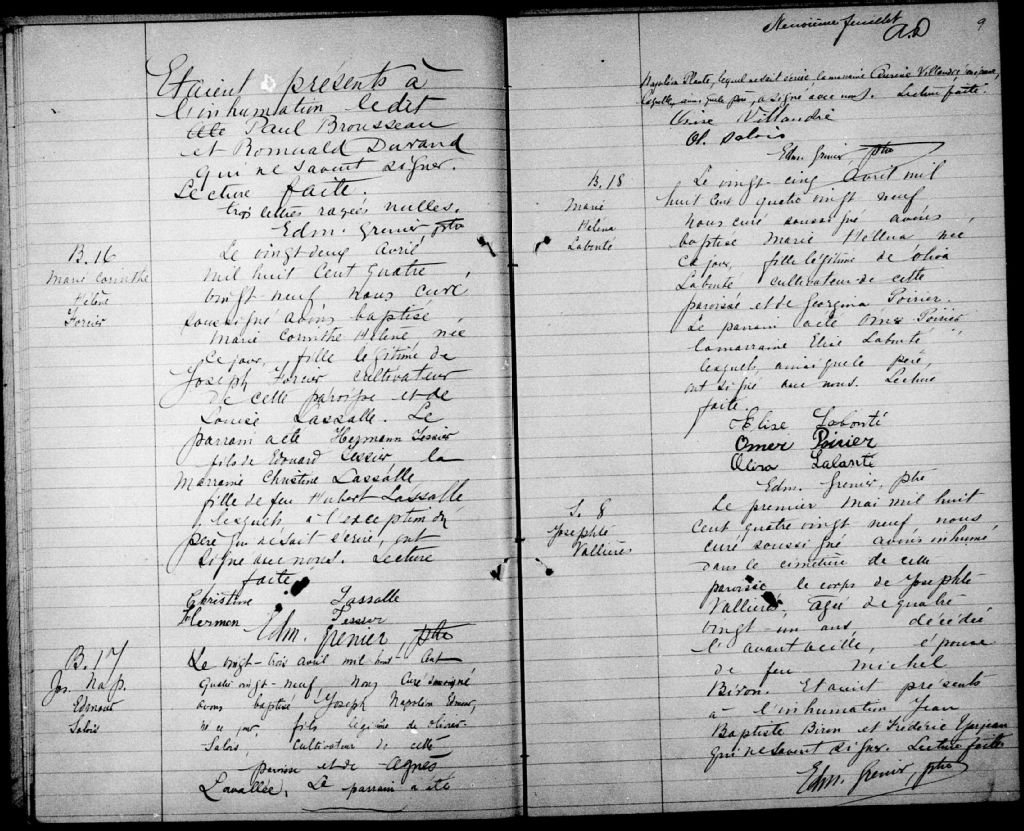 Etaient présents à
l'inhumation ledit
Paul Brousseau
et Romuald Durand
qui ne savent signer.
Lecture faite.
trois lettres rayées nulles.
Edm. Grenier, ptre
B. 16
Marie Corinthe
Helène
Forcier
Le vingt deux Avril
mil huit cent quatre
vingt-neuf, nous curé
soussigné avons baptisé
Marie Corinthe Helène née
ce jour, fille légitime de
Joseph Forcier cultivateur
de cette paroisse et de
Louise Lassalle. Le
parrain a été Hermann Tessier
fils de Edouard Tessier la
Marraine Christine Lassalle
fille de feu Hubert Lassalle
lesquels à l'exception du
père qui ne sait écrire, ont
signé avec nous. Lecture
faite
Christine Lassalle
Hermon Tessier
Edm. Grenier, ptre
B. 17
Jos. Nap.
Edmour
Salois
Le vingt-trois avril mil huit cent
quatre vingt-neuf, nous curé soussigné
avons baptisé Joseph Napoléon Edmour,
né ce jour, fils légitime de olivier
Salois, cultivateur de cette
paroisse et de Agnès
Lavallée, Le parrain a été
Neuvième feuillet
A.D
9
Napoléon Plante, lequel ne sait écrire la marraine Villandré
Laquelle, ainsi que le père, a signé avec nous. Lecture faite.
Villandré
Ol. Salois
Edm. Grenier, ptre
B. 18
Marie
Heléna
Labonté
Le vingt-cinq Avril mil
huit cent quatre vingt neuf
nous curé soussigné avons
baptisé Marie Hellena née
ce jour, fille légitime de Oliva
Labonté cultivateur de cette
paroisse et de Georgina Poirier.
Le parrain a été Omer Poirier
la marraine Elise Labonté,
lesquels, ainsi que le père,
ont signé avec nous. Lecture
faite.
Elise Labonté
Omer Poirier
Oliva Labonté
Edm. Grenier, ptre
S. 8
Josephte
Vallières
Le premier Mai mil huit
cent quatre vingt neuf, nous
curé soussigné avons inhumé
dans le cimetière de cette
paroisse le corps de Josephte
Vallières, agée de quatre
vingt-un ans, décédée
l'avant veille, épouse
de feu Michel
Biron. Etaient présents
à l'inhumation Jean
Baptiste Biron et Frédéric
qui ne savent signer. Lecture faite
Edm. Grenier, ptre